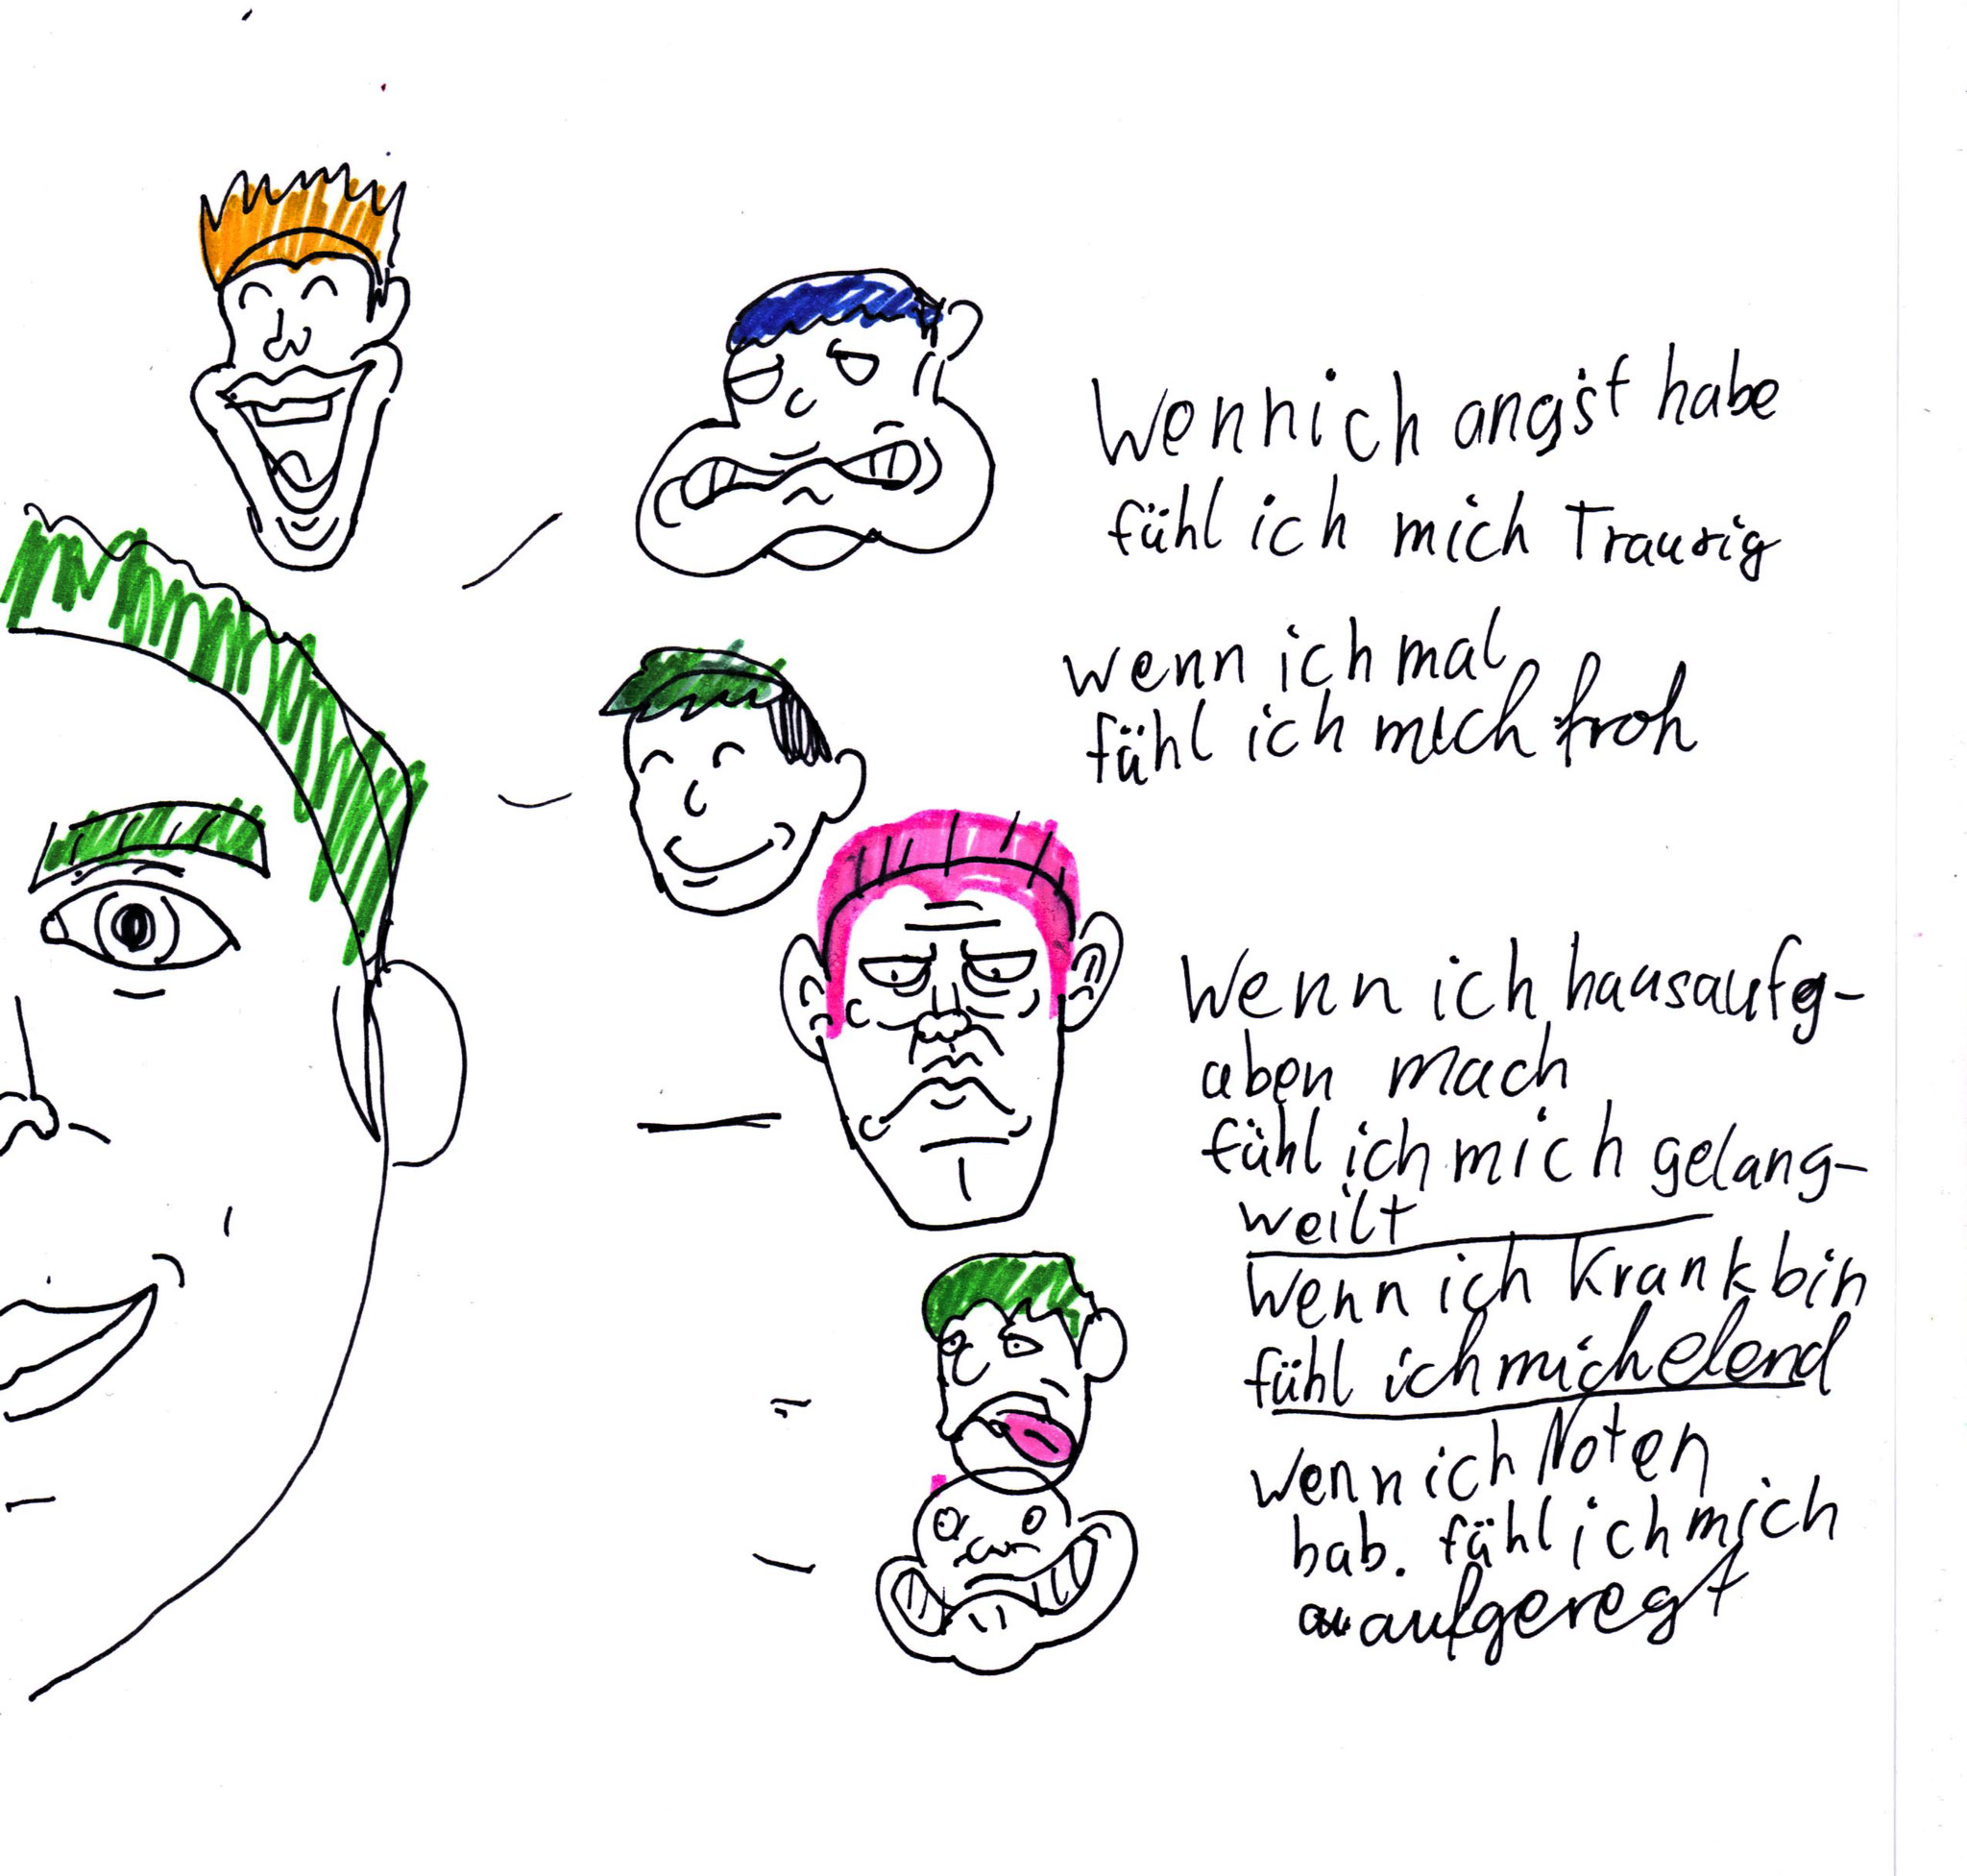 Wenn ich angst habe
fühl ich mich Traurig
wenn ich mal
fühl ich mich froh
Wenn ich hausaufg-
aben mach
fühl ich mich gelang-
weilt
Wenn ich Krank bin
fühl ich mich elend
wenn ich Noten
hab. fühl ich mich
au aufgeregt